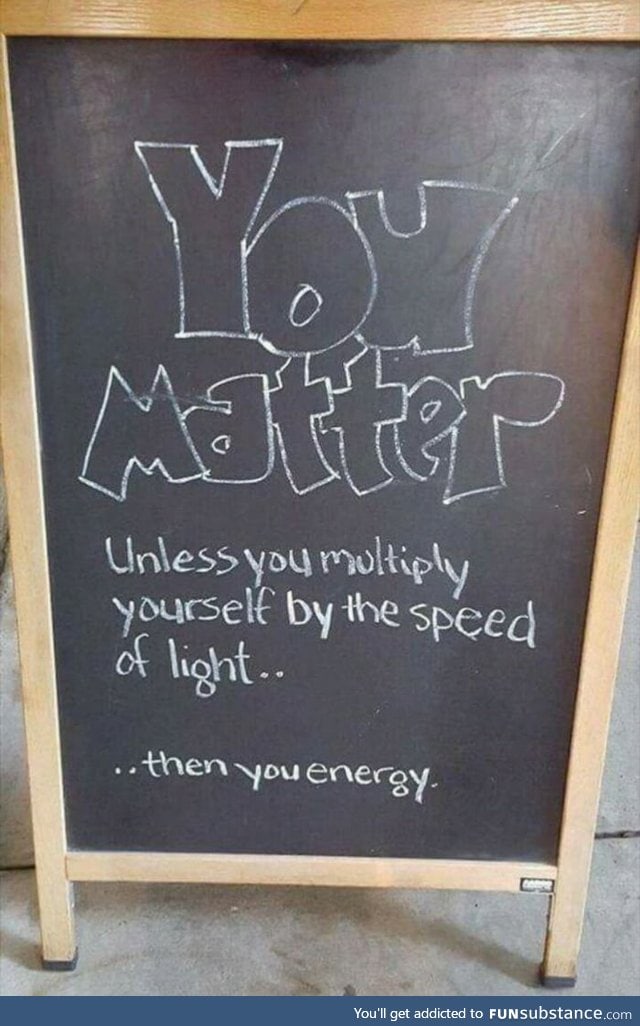 You
Matter
Unless you multiply
yourself by the speed
of light..
..then you energy.
You'll get addicted to FUNsubstance.com